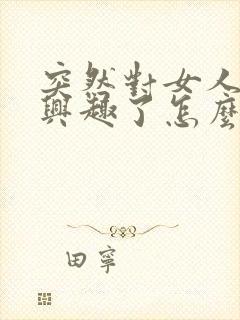 突然對女人
興趣了怎麼
田寧